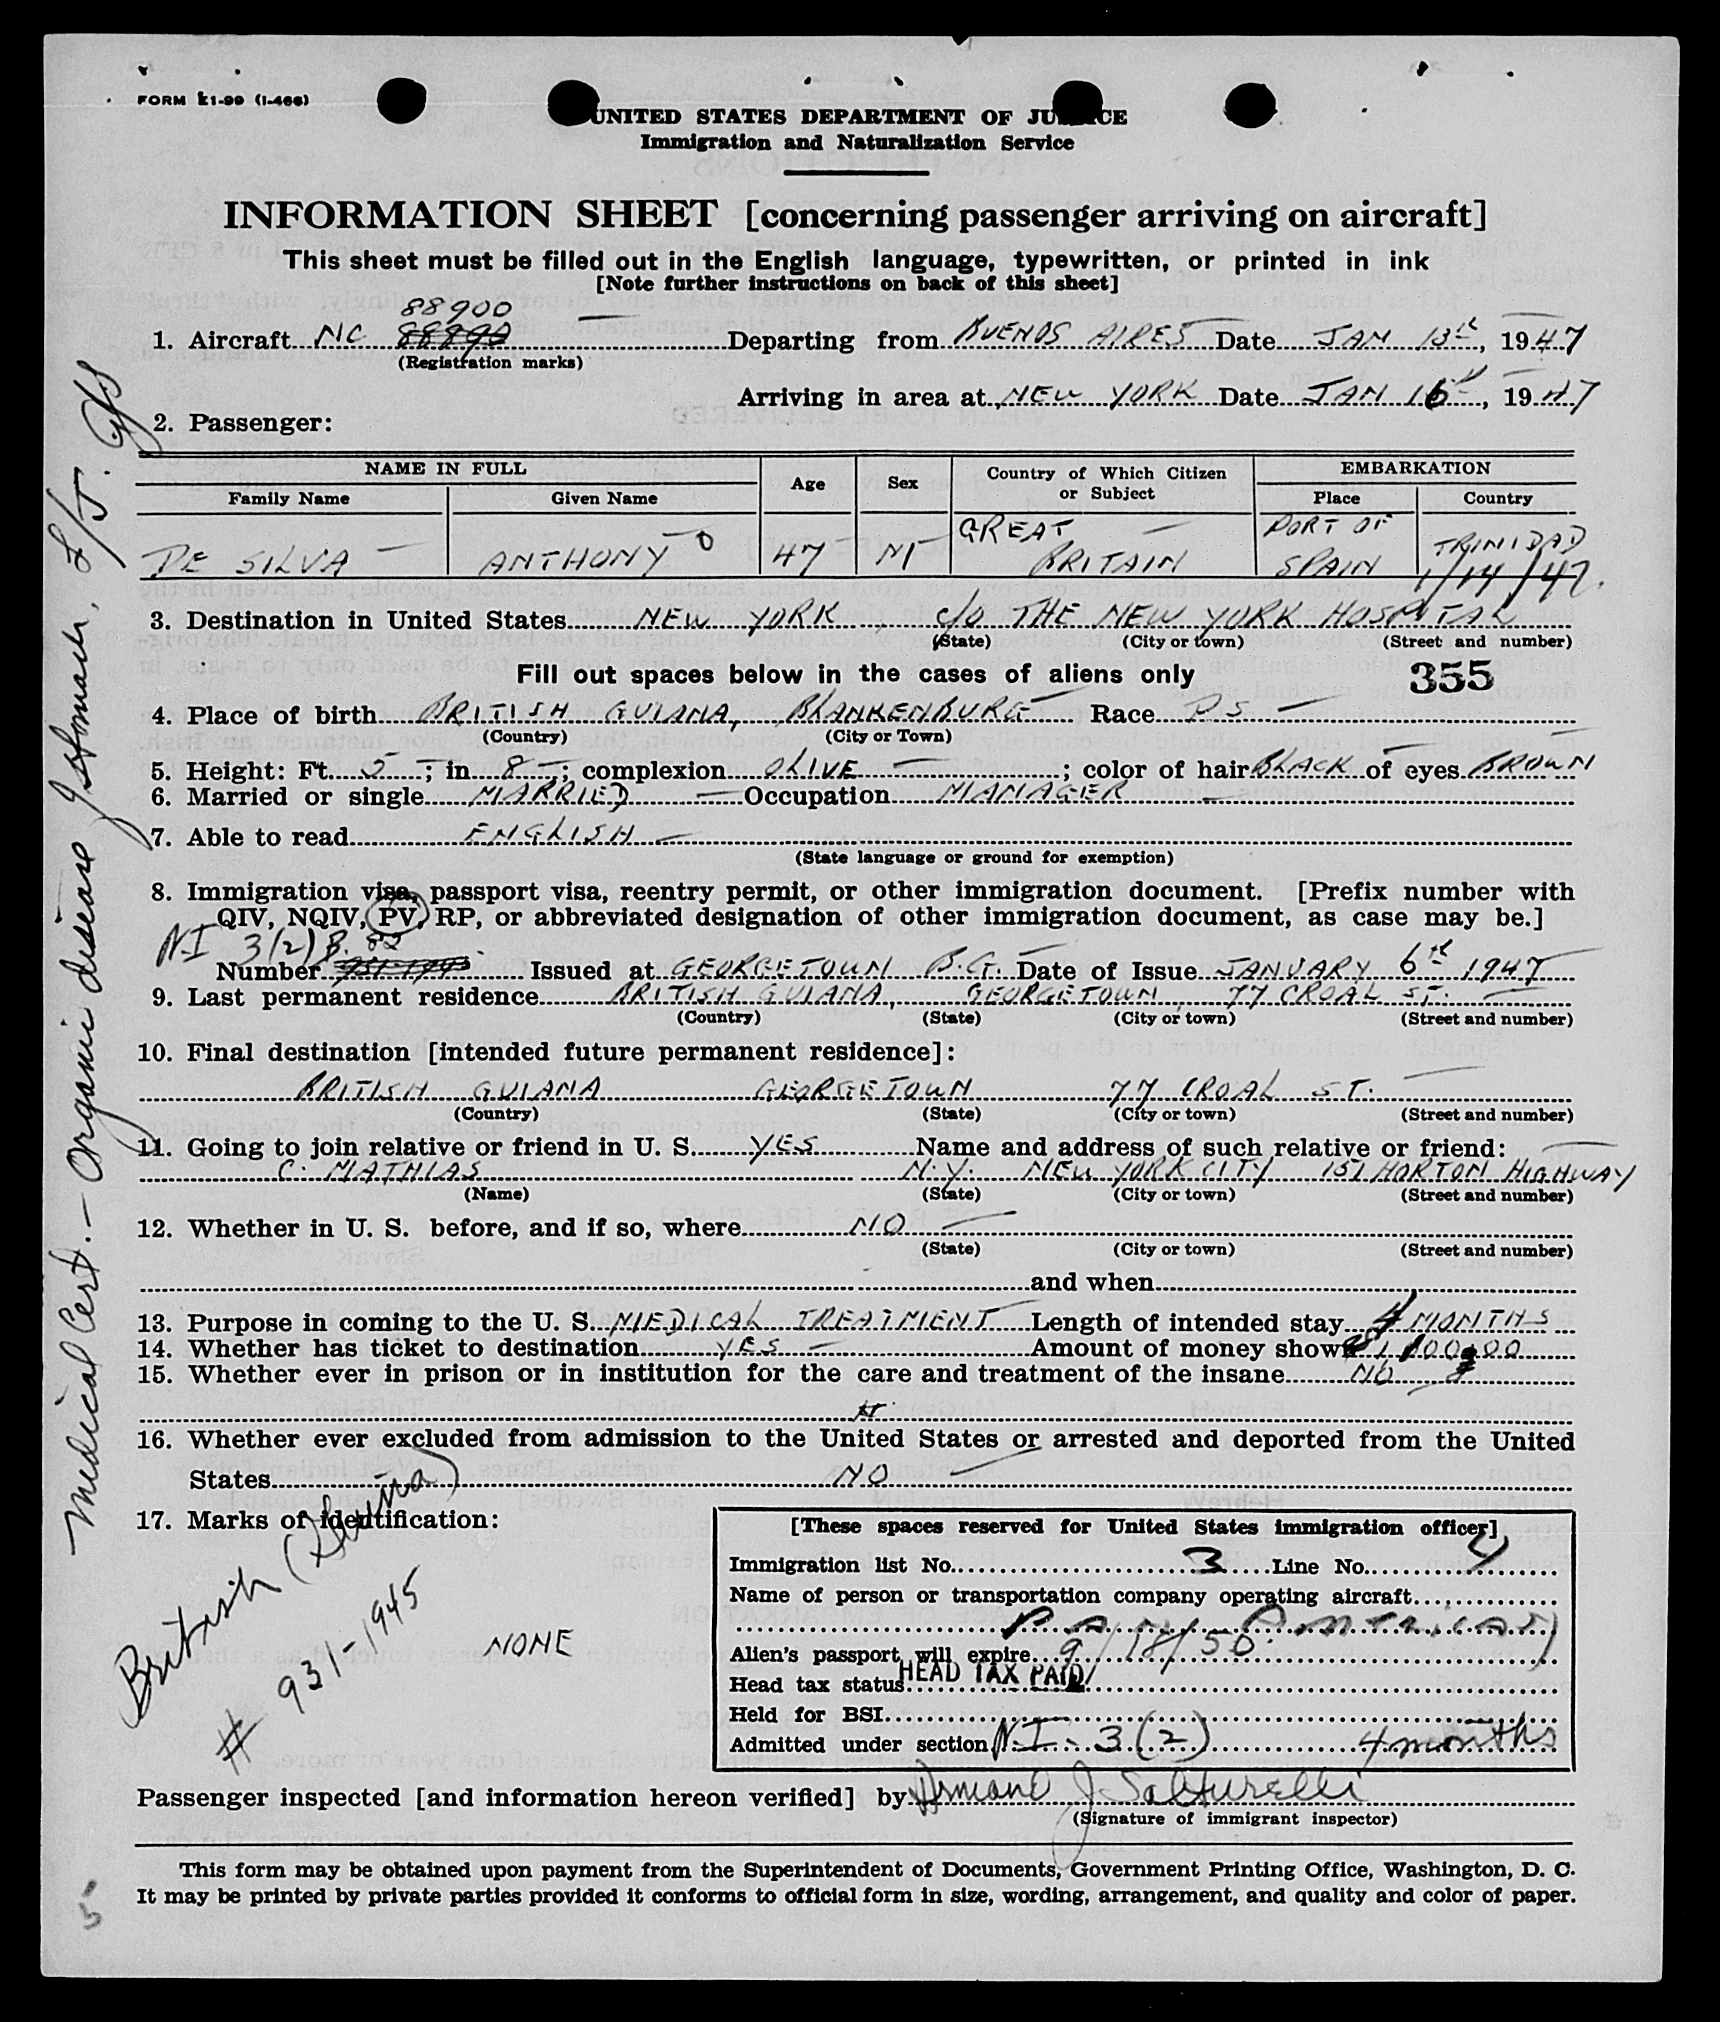 FORM I-99 (I-466)
UNITED STATES DEPARTMENT OF JUSTICE
Immigration and Naturalization Service
INFORMATION SHEET [concerning passenger arriving on aircraft]
This sheet must be filled out in the English language, typewritten, or printed in ink
[Note further instructions on back of this sheet]
88900
1. Aircraft NC Departing from BUENOS AIRES Date JAN 13th, 1947
(Registration marks)
Arriving in area at NEW YORK Date JAN 16th, 1947
2. Passenger:
NAME IN FULL Age Sex Country of Which Citizen or Subject EMBARKATION
Family Name Given Name Place Country
DE SILVA ANTHONY 47 M GREAT BRITAIN PORT OF SPAIN TRINIDAD
1/14/47.
3. Destination in United States NEW YORK, c/o THE NEW YORK HOSPITAL
(State) (City or town) (Street and number)
Fill out spaces below in the cases of aliens only 355
4. Place of birth BRITISH GUIANA, BLANKENBURG Race PS
(Country) (City or Town)
5. Height: Ft. 5; in. 8; complexion OLIVE; color of hair BLACK of eyes BROWN
6. Married or single MARRIED Occupation MANAGER
7. Able to read ENGLISH
(State language or ground for exemption)
8. Immigration visa, passport visa, reentry permit, or other immigration document. [Prefix number with
QIV, NQIV, PV, RP, or abbreviated designation of other immigration document, as case may be.]
NI 3(2) B. 82
Number Issued at GEORGETOWN B.G. Date of Issue JANUARY 6th 1947
9. Last permanent residence BRITISH GUIANA, GEORGETOWN, 77 CROAL ST.
(Country) (State) (City or town) (Street and number)
10. Final destination [intended future permanent residence]:
BRITISH GUIANA GEORGETOWN 77 CROAL ST.
(Country) (State) (City or town) (Street and number)
11. Going to join relative or friend in U. S. YES Name and address of such relative or friend:
C. MATHIAS N.Y. NEW YORK CITY 151 HORTON HIGHWAY
(Name) (State) (City or town) (Street and number)
12. Whether in U. S. before, and if so, where NO
(State) (City or town) (Street and number)
and when
13. Purpose in coming to the U. S. MEDICAL TREATMENT Length of intended stay 4 MONTHS
14. Whether has ticket to destination YES Amount of money shown
15. Whether ever in prison or in institution for the care and treatment of the insane NO
16. Whether ever excluded from admission to the United States or arrested and deported from the United
States NO
17. Marks of identification:
NONE
British (Guiana)
# 931-1945
[These spaces reserved for United States immigration officer]
Immigration list No. 3 Line No. 4
Name of person or transportation company operating aircraft
PAN American
Alien's passport will expire 9/18/50.
Head tax status HEAD TAX PAID
Held for BSI
Admitted under section N.I. 3(2) 4 months
Passenger inspected [and information hereon verified] by Armand J. Salturelli
(Signature of immigrant inspector)
This form may be obtained upon payment from the Superintendent of Documents, Government Printing Office, Washington, D. C.
It may be printed by private parties provided it conforms to official form in size, wording, arrangement, and quality and color of paper.
Medical Cert. - Organic disease Stomach.
5